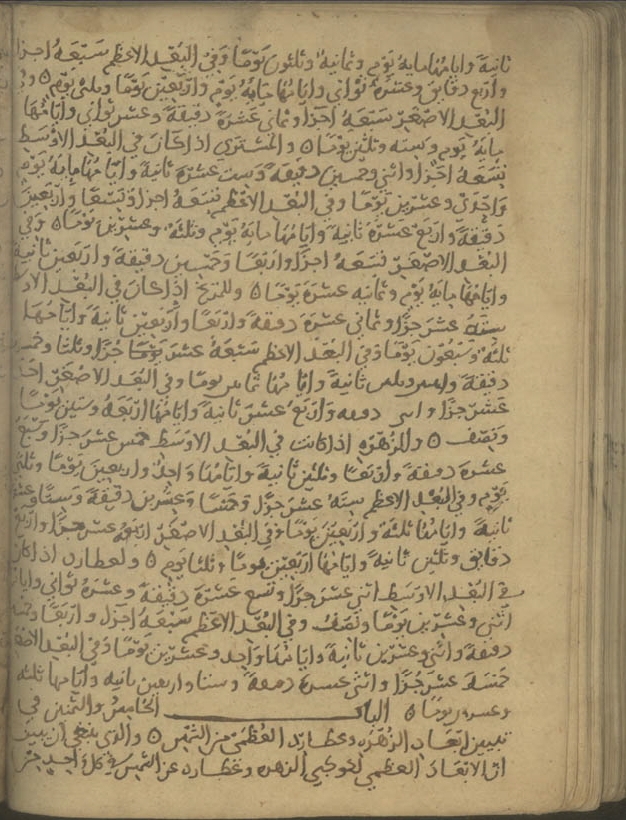 ثانية وايامها مايه يوم وثمانية وثلثون يوما وفي البعد الاعظم سبعه اجزا
واربع دقايق وعشره ثواني وايامها مايه يوم واربعين يوما وثلثي يوم ٥ وفي
البعد الاصغر سبعه اجزا وثماني عشرة دقيقة وعشر ثواني وايامها
مايه يوم وسته وثلثين يوما ٥ والمشتري اذا كان في البعد الاوسط
تسعه اجزا واثني وخمسين دقيقه وست عشرة ثانية وايامها مايه يوم
واحدى وعشرين يوما وفي البعد الاعظم تسعه اجزا وتسعا واربعين
دقيقة واربع عشرة ثانية وايامها مايه يوم وثلثه وعشرين يوما ٥ وفي
البعد الاصغر تسعه اجزا واربعا وخمسين دقيقة واربعين ثانية
وايامها مايه يوم وثمانيه عشرة يوما ٥ وللمريخ اذا كان في البعد الاوسط
سته عشر جزا وثماني عشرة دقيقة واربعا واربعين ثانية وايامها
ثلثه وسبعون يوما وفي البعد الاعظم سبعة عشر جزا وثلثا وخمسين
دقيقة وثلثين ثانية وايامها ثمانين يوما وفي البعد الاصغر احد
عشر جزا واثني دقيقه واربع عشر ثانية وايامها اربعه وستين يوما
ونصف ٥ والزهره اذا كانت في البعد الاوسط خمس عشر جزا وسبع
عشرة دقيقة واربعا وثلثين ثانية وايامها واحد واربعين يوما وثلثي
يوم وفي البعد الاعظم سته عشر جزا وخمسا وعشرين دقيقة وستا وعشرين
ثانية وايامها ثلثة واربعين يوما وفي البعد الاصغر اربعه عشر جزا واربع
دقايق وثلثين ثانية وايامها اربعين يوما وثلثا يوم ٥ ولعطارد اذا كان
في البعد الاوسط اثني عشر جزا وتسع عشرة دقيقة وعشرة ثواني وايامها
اثني وعشرين يوما ونصف وفي البعد الاعظم سبعه اجزا واربعا وخمسين
دقيقة واثني وعشرين ثانية وايامها واحد وعشرين يوما وفي البعد الاصغر
خمسة عشر جزا واثني عشرة دقيقة وستا واربعين ثانيه وايامها ثلثه
وعشرون يوما ٥ الباب الخامس والثمنين في
تبيين ابعاد الزهره وعطارد العظمى من الشمس ٥ والذي ينبغي ان نبين
ان الابعاد العظمى لكوكبي الزهره وعطارد عن الشمس في كل احد من